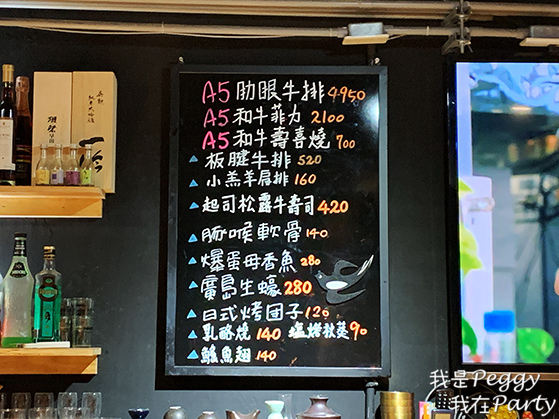 A5肋眼牛排4950
A5和牛菲力2100
A5和牛壽喜燒700
板腱牛排520
小羔羊肩排160
起司松露牛壽司420
豚喉軟骨140
爆蛋母香魚280
廣島生蠔280
日式烤団子120
乳酪燒140 塩烤秋葵90
鱼翅140
我是Peggy
我在Party